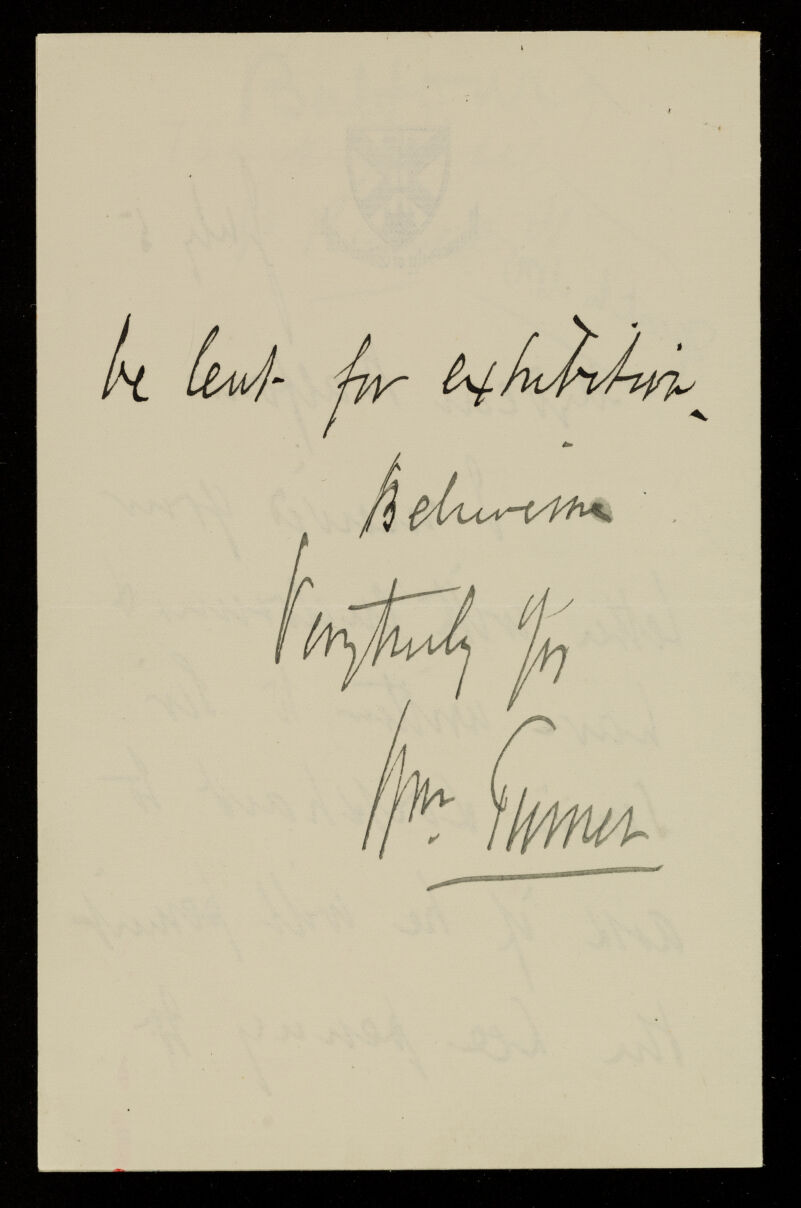 be lent for exhibition.
Believe me
Very truly Yrs
Wm. Turner